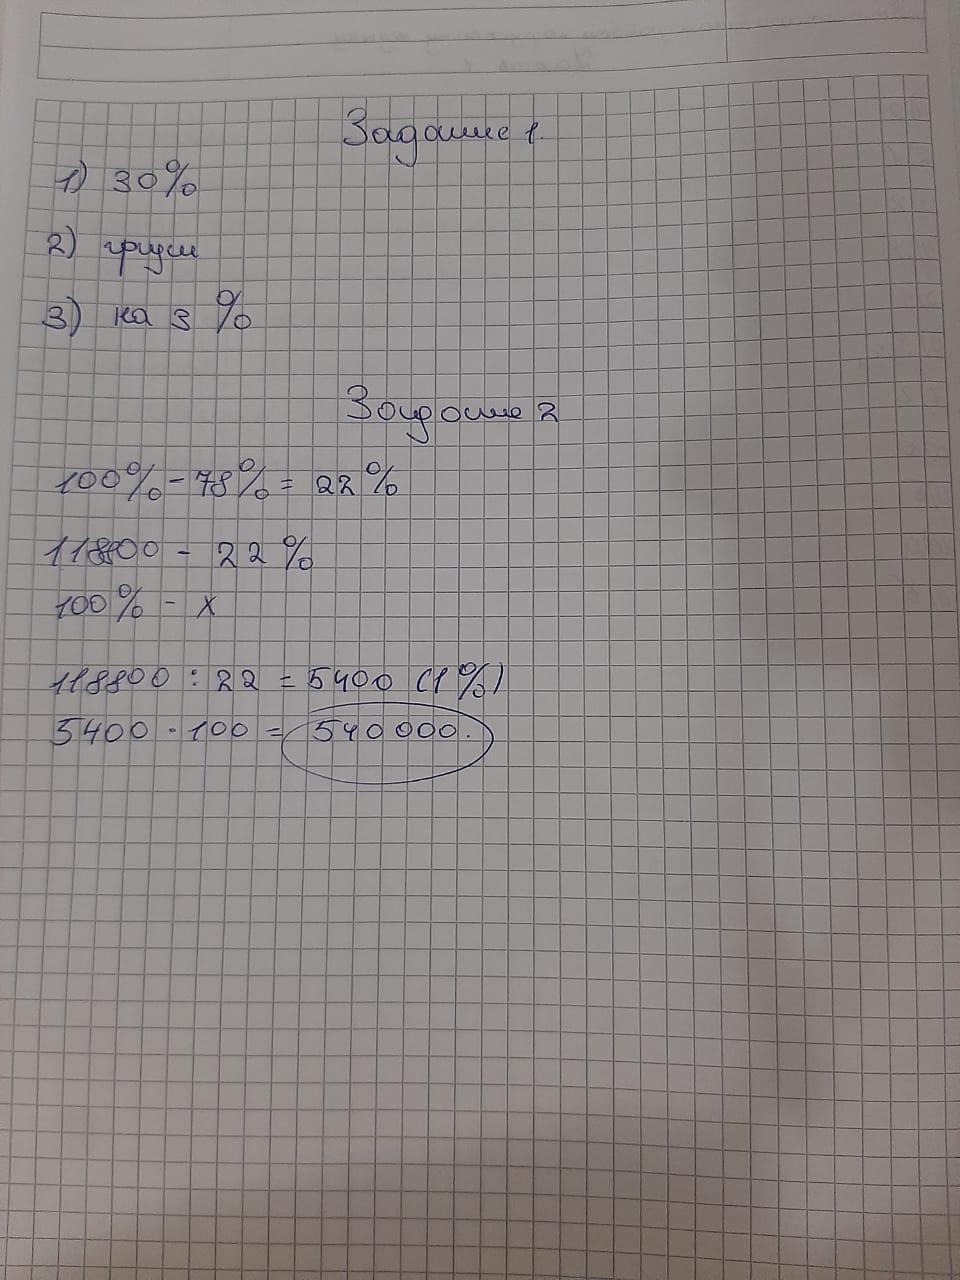 Задание 1.
1) 30%
2) груши
3) на 3 %
Задание 2
100% - 78% = 22%
118800 - 22%
100% - x
118800 : 22 = 5400 (1%)
5400 · 100 = 540 000.